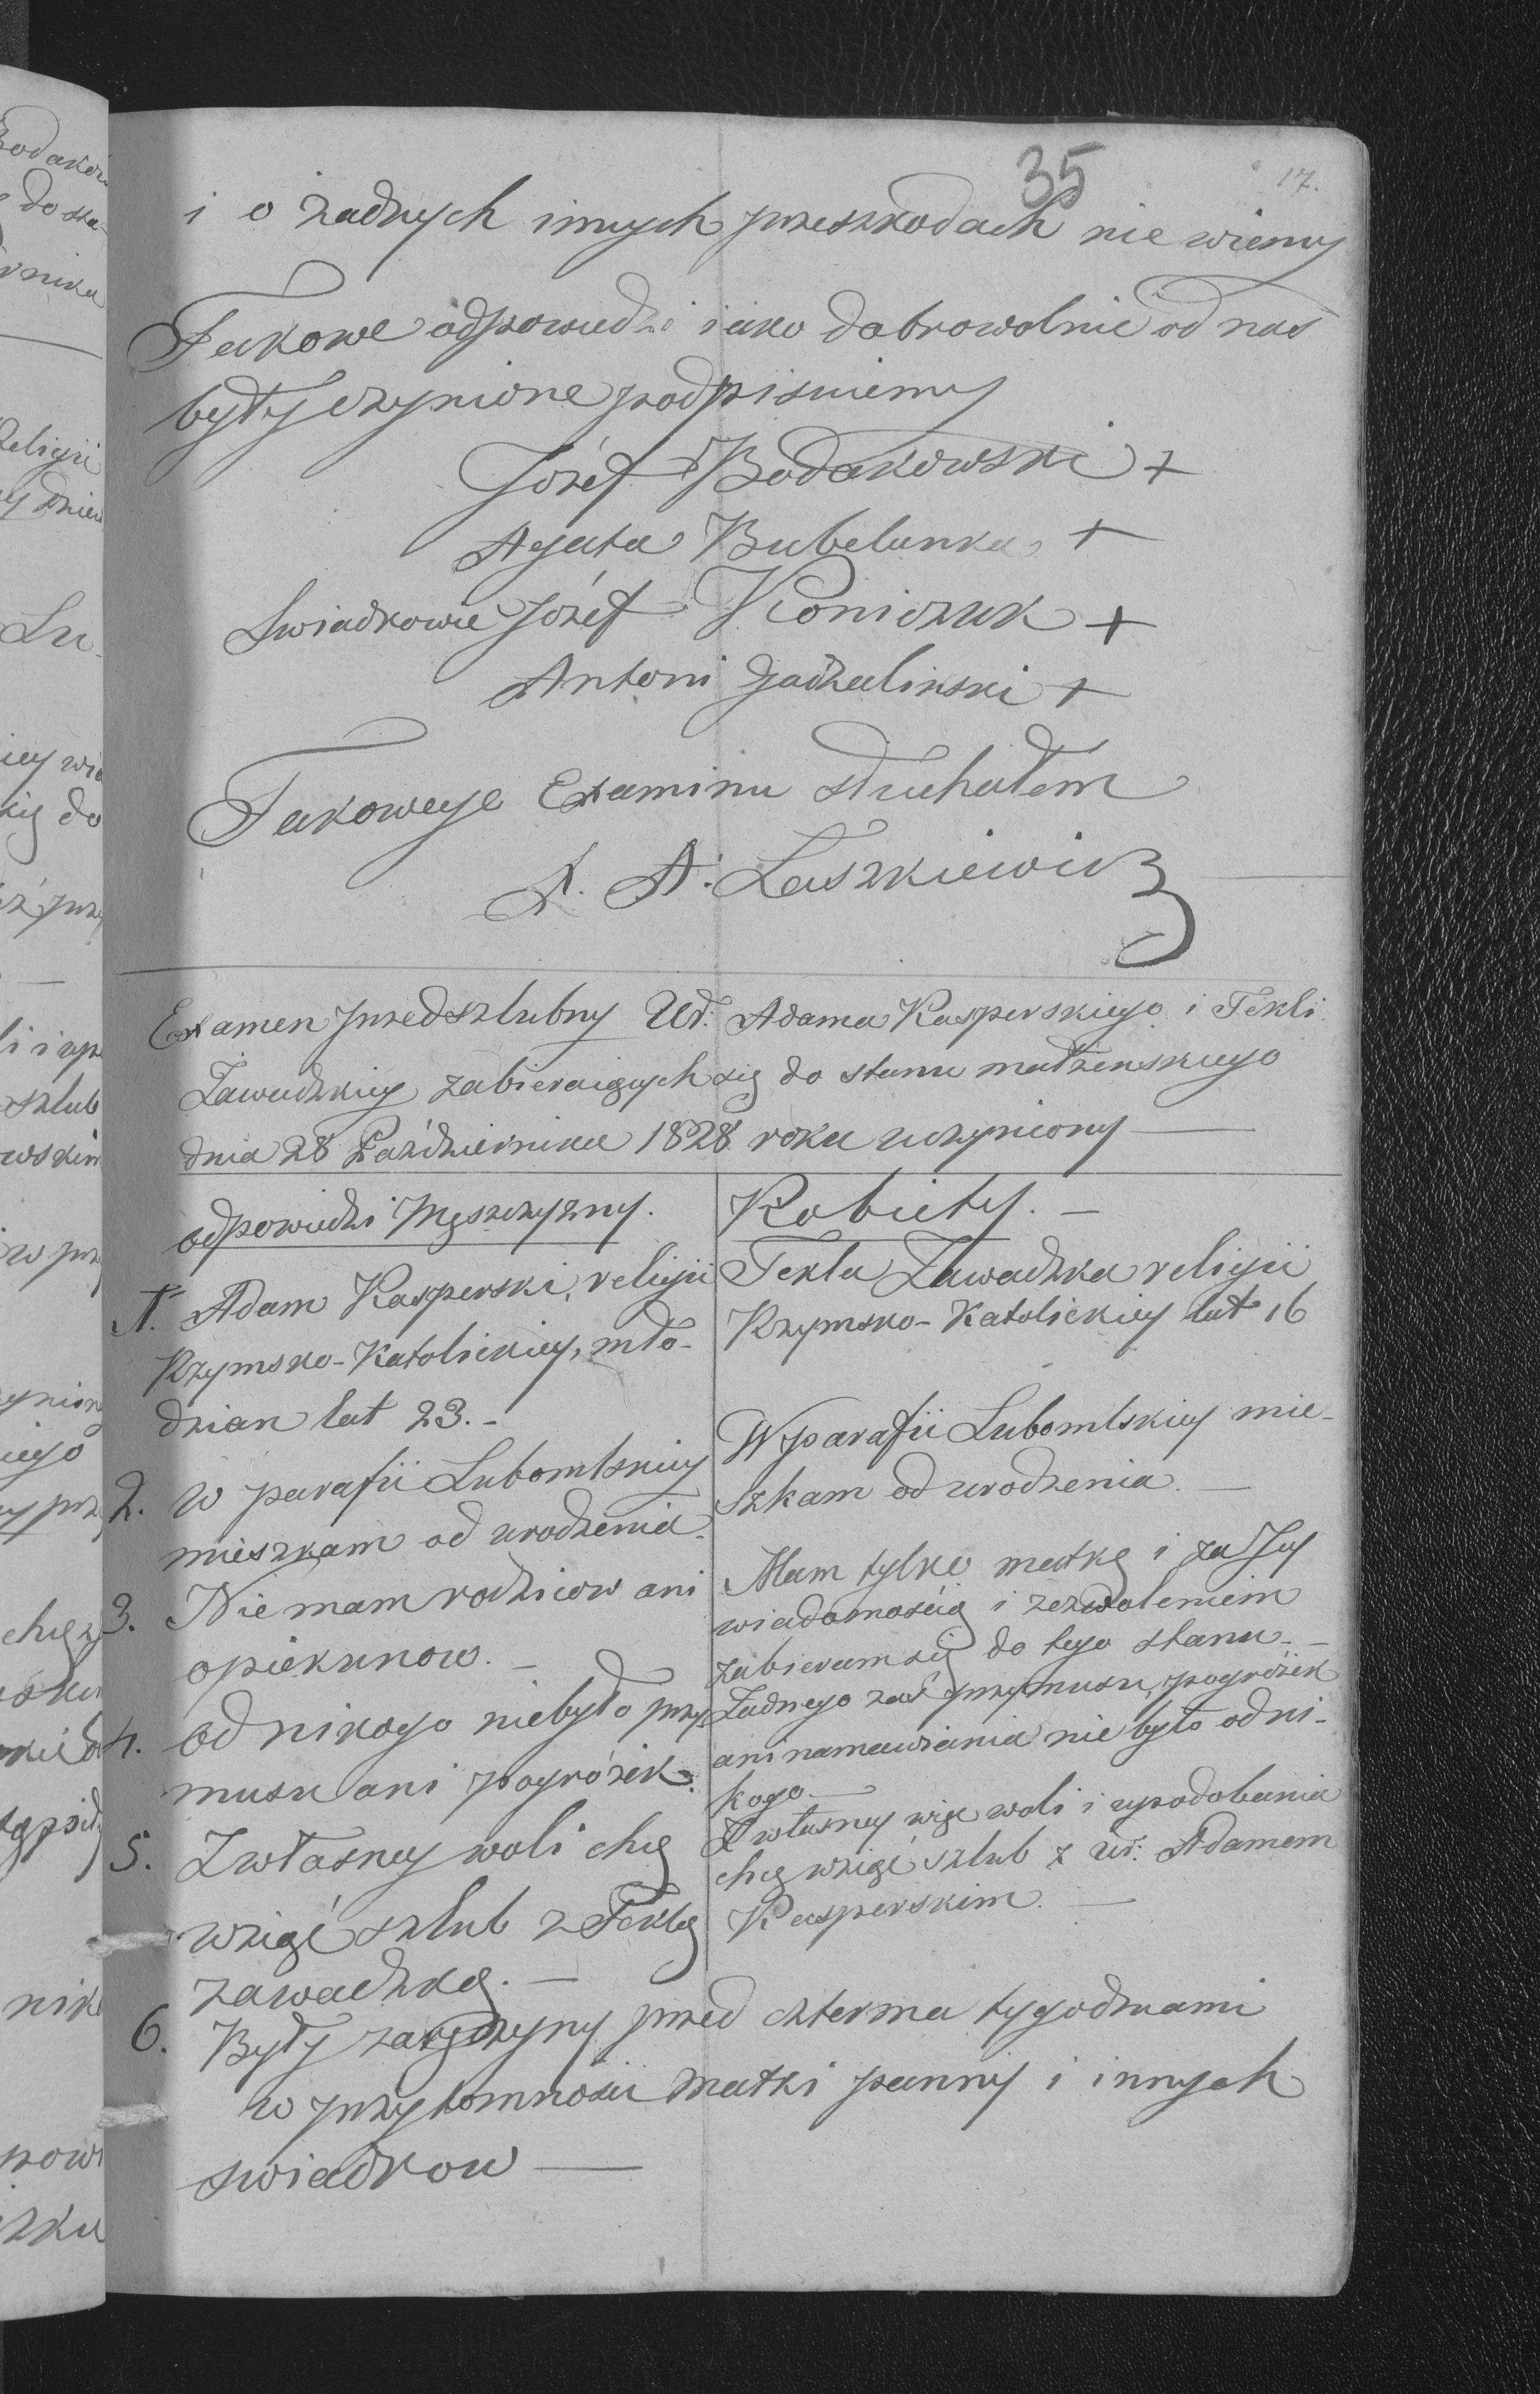 35
17.
i o żadnych innych przeszkodach nie wiemy
Takowe odpowiedzi iako dobrowolnie od nas
były czynione podpisuiemy
Józef Bodakowski +
Agata Bubelanka +
Swiadkowie Józef Koniczuk +
Antoni Gadzalinski +
Takowego Examinu słuchałem
X. A. Laszkiewicz
Examen przedszlubny Ur: Adama Kasperskiego i Tekli
Zawadzkiey zabieraiących się do stanu małżenskiego
dnia 28 Października 1828 roku uczyniony
odpowiedzi Męszczyzny.
1. Adam Kasperski, religii
Rzymsko-Katolickiey, mło-
dzian lat 23.-
2. W parafii Lubomlskiey
mieszkam od urodzenia.
3. Nie mam rodzicow ani
opiekunow. -
4. od nikogo niebyło przy
musu ani pogróżek.
5. Z własney woli chcę
wziąć szlub z Teklą
Zawadzką. -
Kobiety. -
Tekla Zawadzka religii
Rzymsko-Katolickiey lat 16
W parafii Lubomlskiey mie-
szkam od urodzenia. -
Mam tylko matkę i za Jey
wiadomością i zezwoleniem
zabieram się do tego stanu. -
Żadnego zaś przymusu, pogróżek
ani namawiania nie było od ni-
kogo -
Z własney więc woli i upodobania
chcę wziąć szlub z Ur: Adamem
Kasperskim. -
6. Były zaręczyny przed czterma tygodniami
w przytomności matki panny i innych
swiadkow -